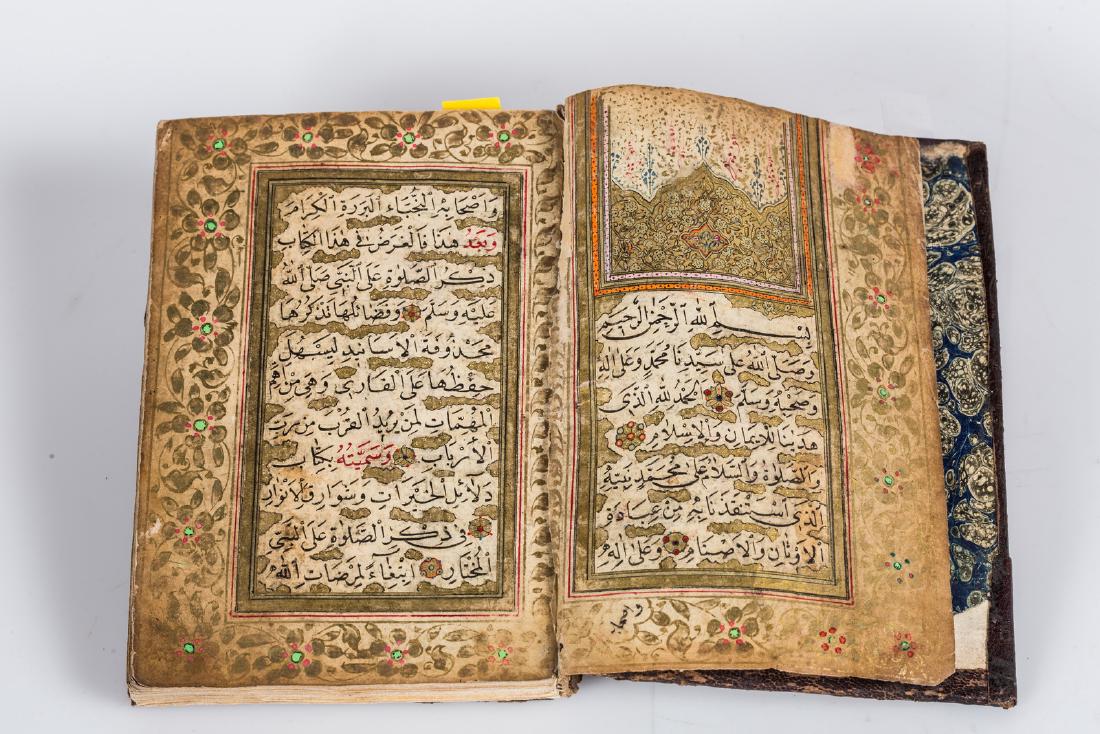 بسم الله الرحمن الرحيم
وصلى الله على سيدنا محمد وعلى اله
وصحبه وسلم الحمد لله الذى
هدينا للايمان والاسلام
والصلوة والسلام على محمد نبيه
الذى استنقذنا به من عبادة
الاوثان والاصنام وعلى اله
واصحابه
واصحابه النجباء البررة الكرام
وبعد هذا فالغرض فى هذا الكتاب
ذكر الصلوة على النبى صلى الله
عليه وسلم وفضائلها نذكرها
محذوفة الاسانيد ليسهل
حفظها على القارى وهى من اهم
المهمات لمن يريد القرب من رب
الارباب وسميته بكتاب
دلائل الخيرات وشوارق الانوار
فى ذكر الصلوة على النبى
المختار ابتغاء لمرضات الله